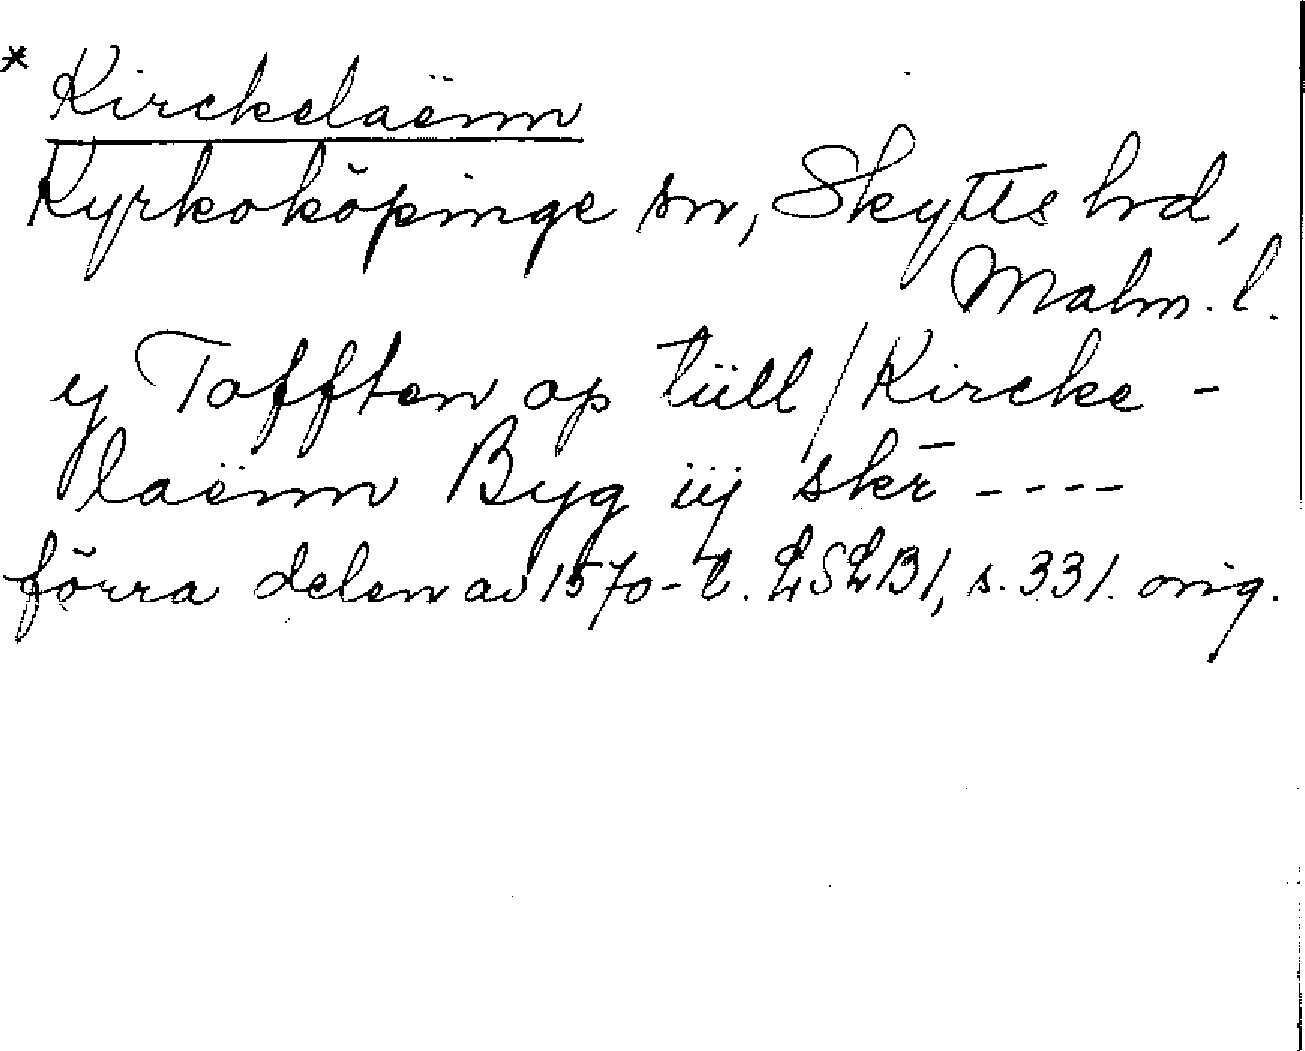 * Kirckelaënn
Kyrkoköpinge sn, Skytts hrd,
Malm. l.
y Tofften op tüll / Kircke-
laënn Byg iij skr̄ ----
förra delen av 1570-t. LSLB1, s. 331. orig.